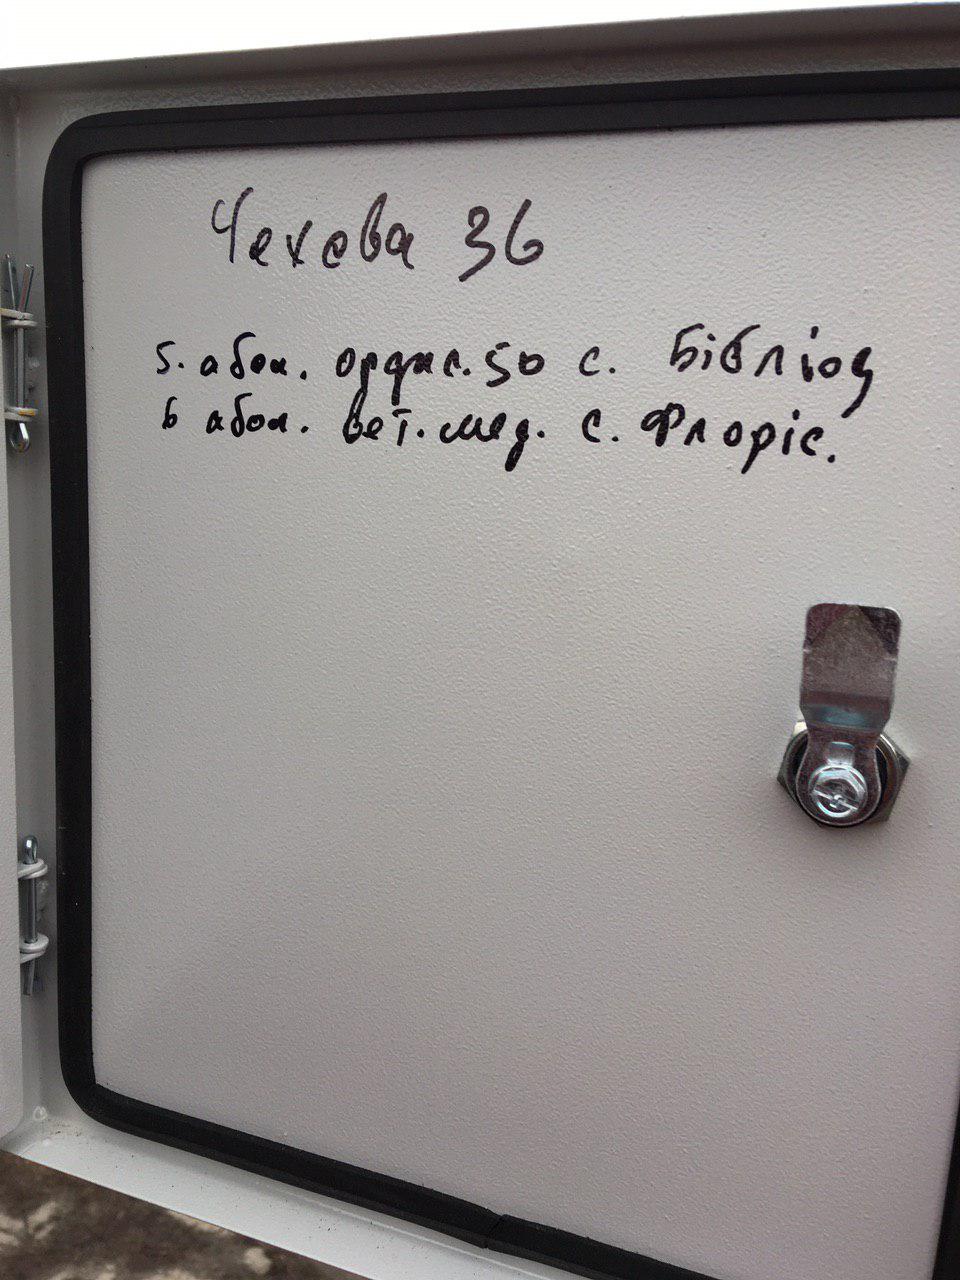 Чехова 36
5. абон. орджс. 50 с. Бібліощ
6 абон. вет. мед. с. Флоріс.